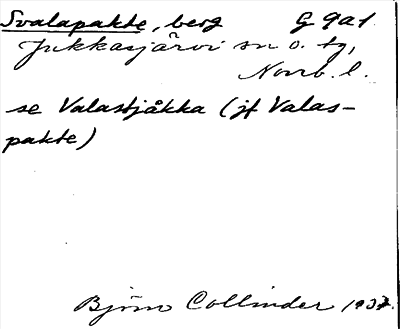 Svalapakte, berg G 9a1
Jukkasjärvi sn o. tg,
Norrb. l.
se Valastjåkka (jf Valas-
pakte)
Björn Collinder 1937.